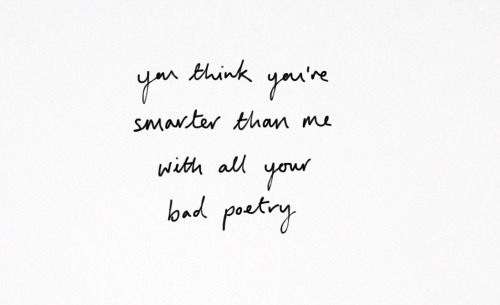 you think you're
smarter than me
with all your
bad poetry